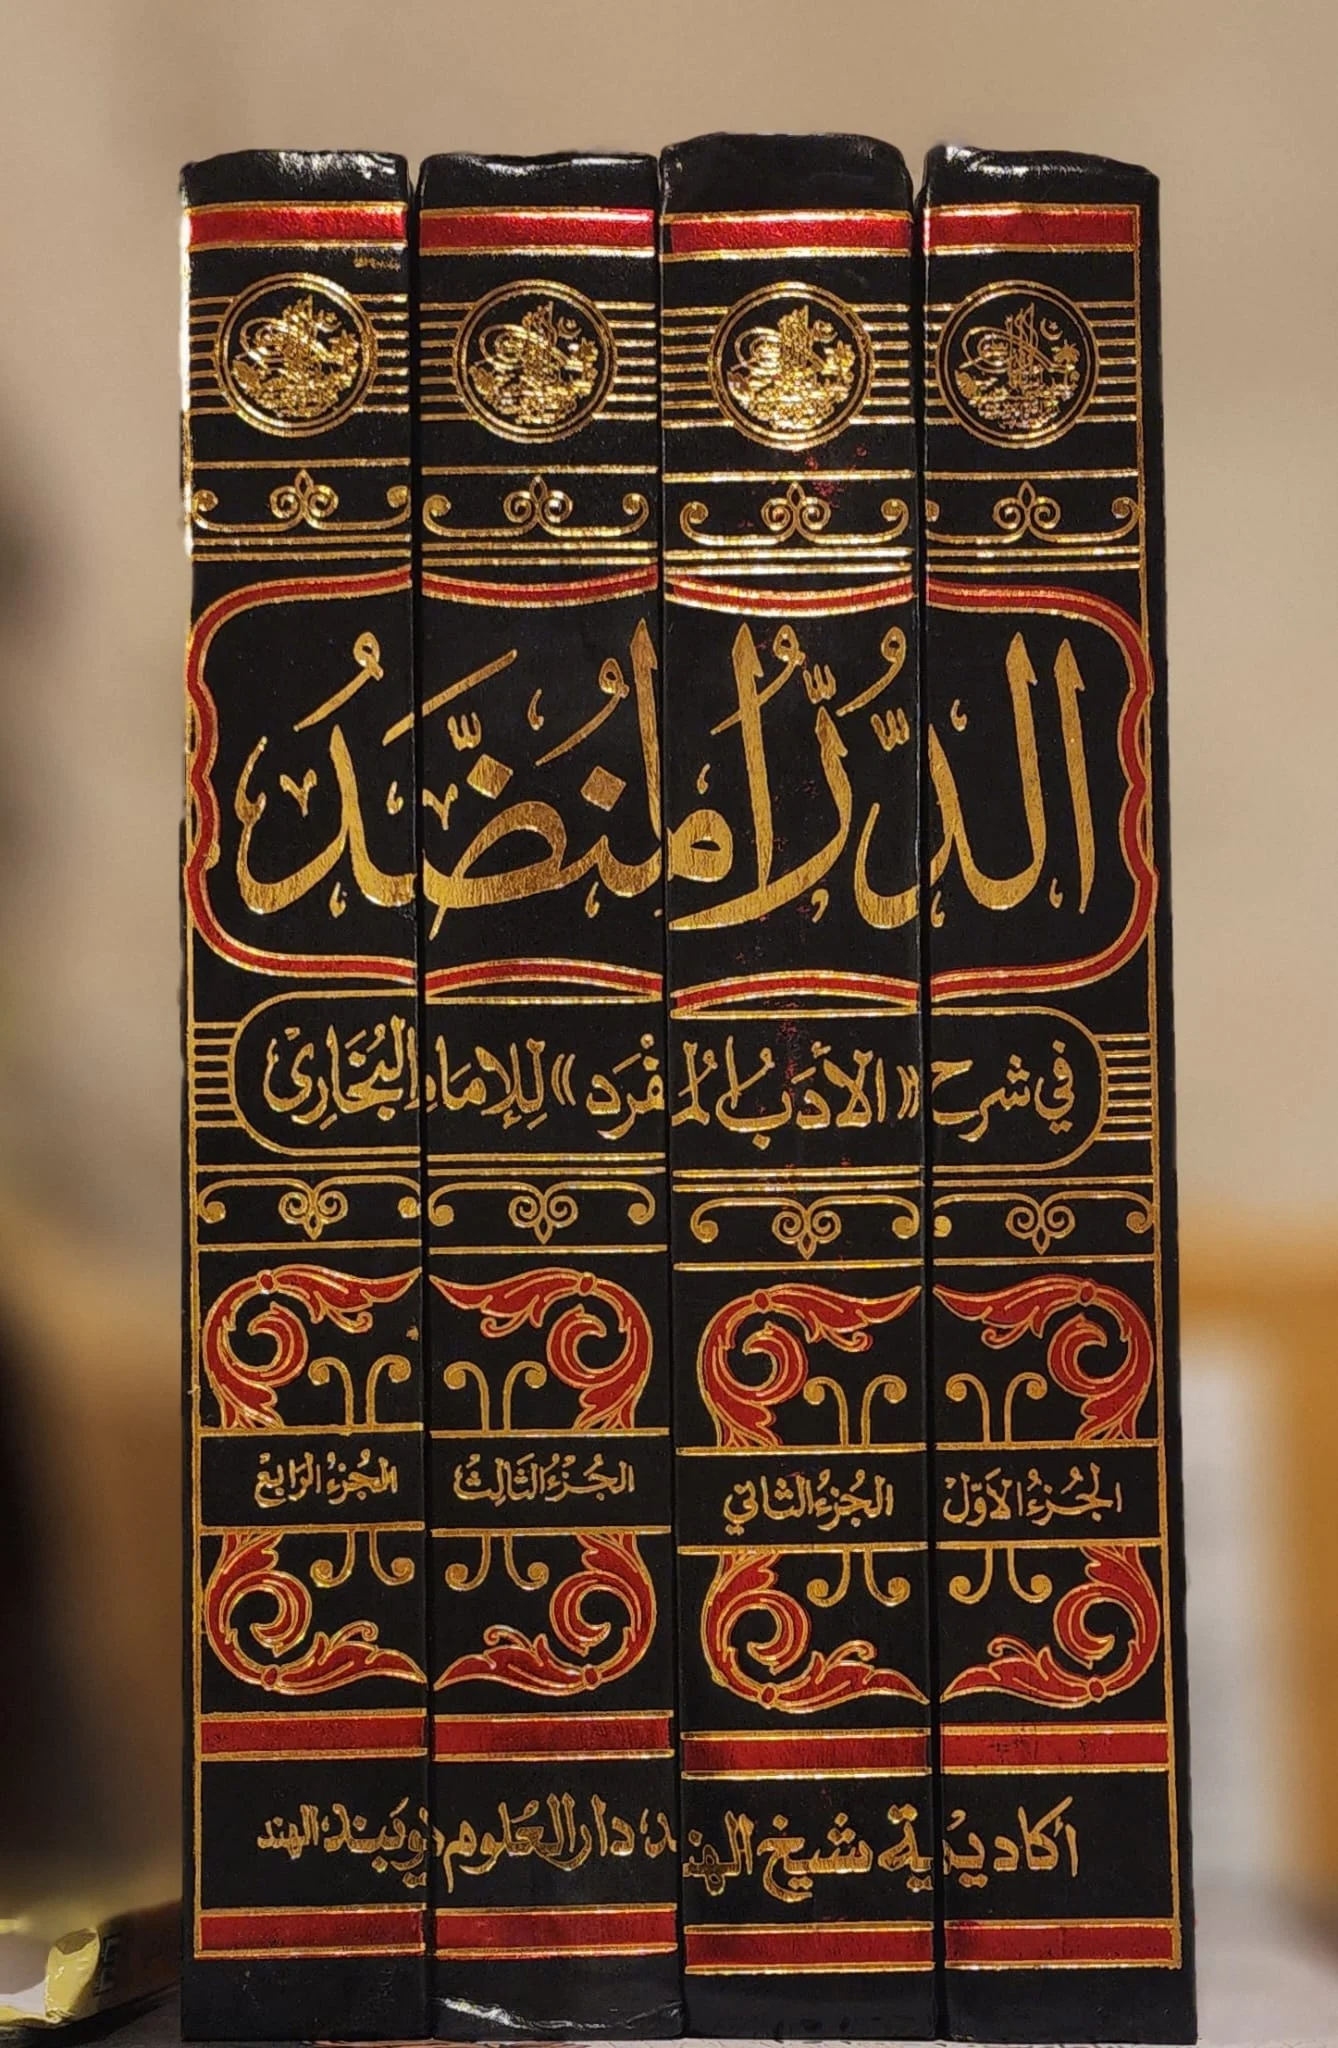 الدُّرُّ المُنَضَّدُ
في شرح «الأَدَبُ المُفْرَد» لِلإمَامِ البُخَارِيْ
الجُزءُ الأَوّلْ
الجُزءُ الثاني
الجُزْءُ الثَالِثْ
الجُزءُ الرَابِعْ
أكاديمية شيخ الهند، دار العُلوم ديوبند، الهند